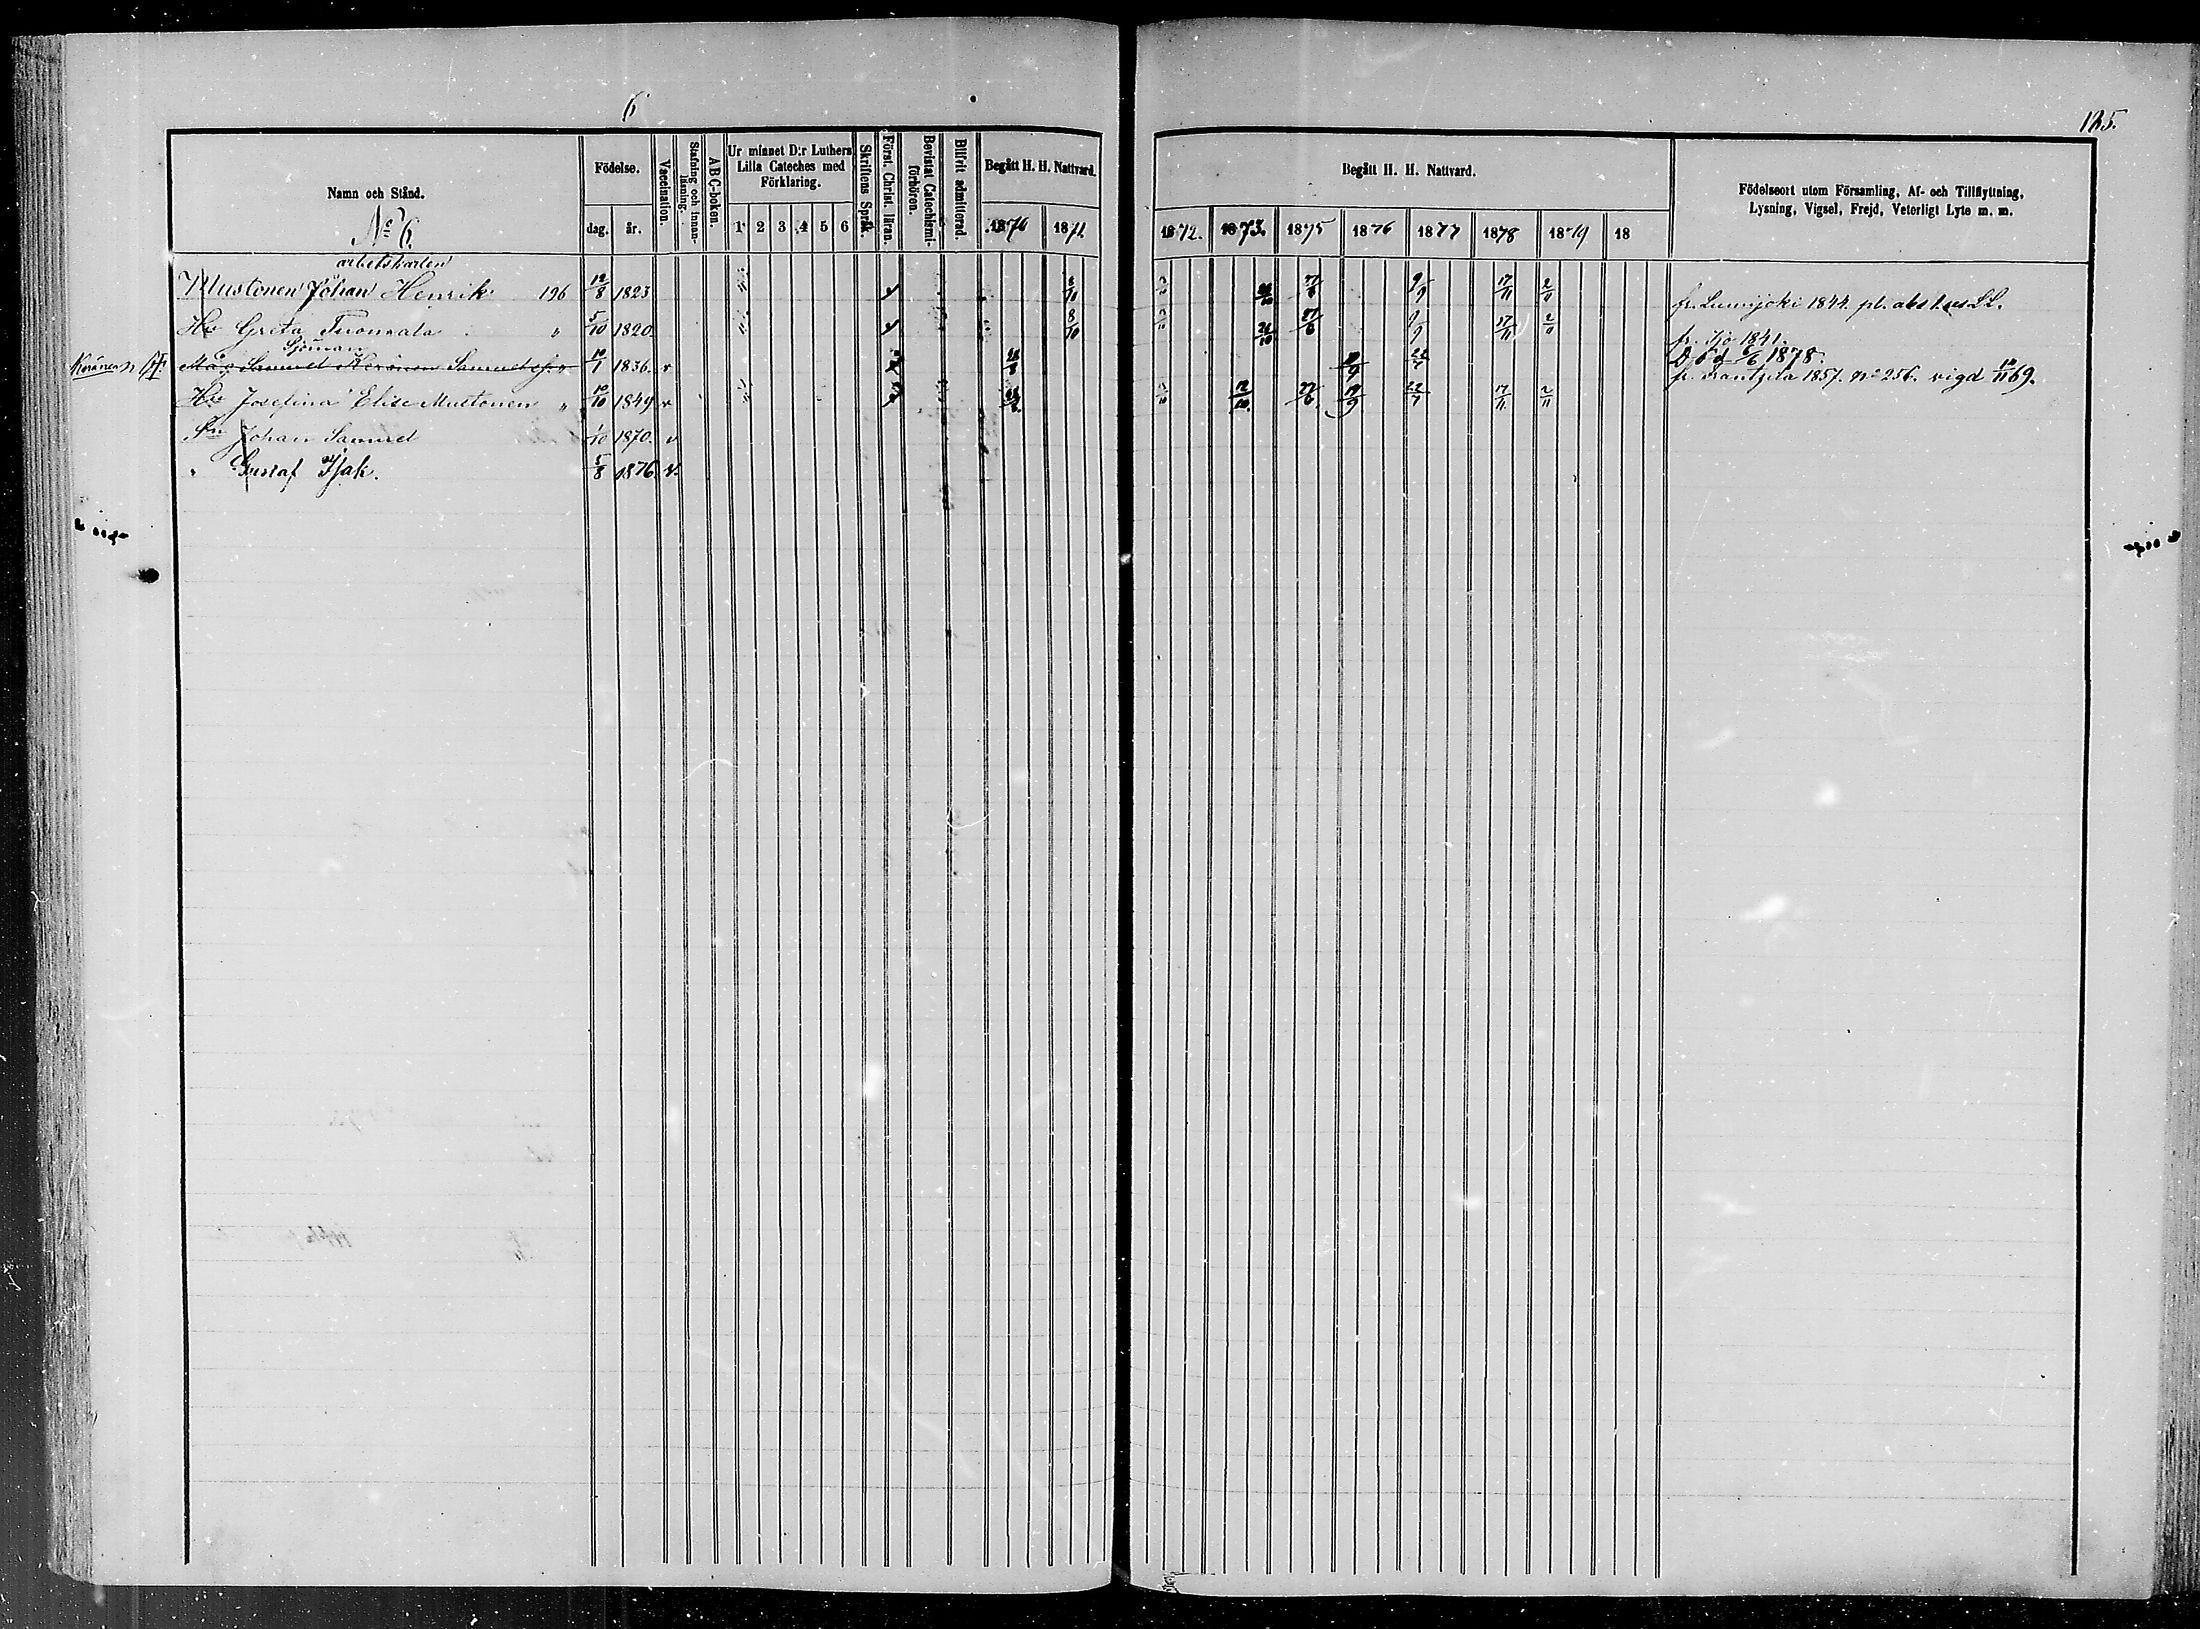 6
125.
Namn och Stånd.
Födelse.
dag.
år.
Vaccination.
Stafning och innanläsning.
ABC-boken.
Ur minnet D:r Luthers Lilla Cateches med Förklaring.
1 2 3 4 5 6
Skriftens Språk.
Först. Christ. läran.
Bevistat Catechismiförhören.
Blifvit admitterad.
Begått H. H. Nattvard.
1870 1871
Begått H. H. Nattvard.
1872. 1873. 1875 1876 1877 1878 1879 18
Födelseort utom Församling, Af- och Tillflyttning,
Lysning, Vigsel, Frejd, Veterligt Lyte m. m.
No 6.
arbetskarlen
Mustonen Johan Henrik 196 12/8 1823 8/10 26/10 27/6 9/9 17/11 2/11 fr. Lumijoki 1844.
Hu Greta Tuomala " 5/10 1820 8/10 26/10 27/6 9/9 17/11 2/11 fr. Ijo 1841.
Sjöman
Keränen Måg Samuel Keränen Samuelsf. " 10/1 1836. v 22/7 Död 6/6 1878.
fr. Frantzila 1857. no 256. vigd 10/11 69.
Hu Josefina Elise Mustonen " 10/10 1849 v 12/10 22/6 19/9 22/7 17/11 2/11
Sn Johan Samuel 1/10 1870. v
" Gustaf Isak. 5/8 1876 v.